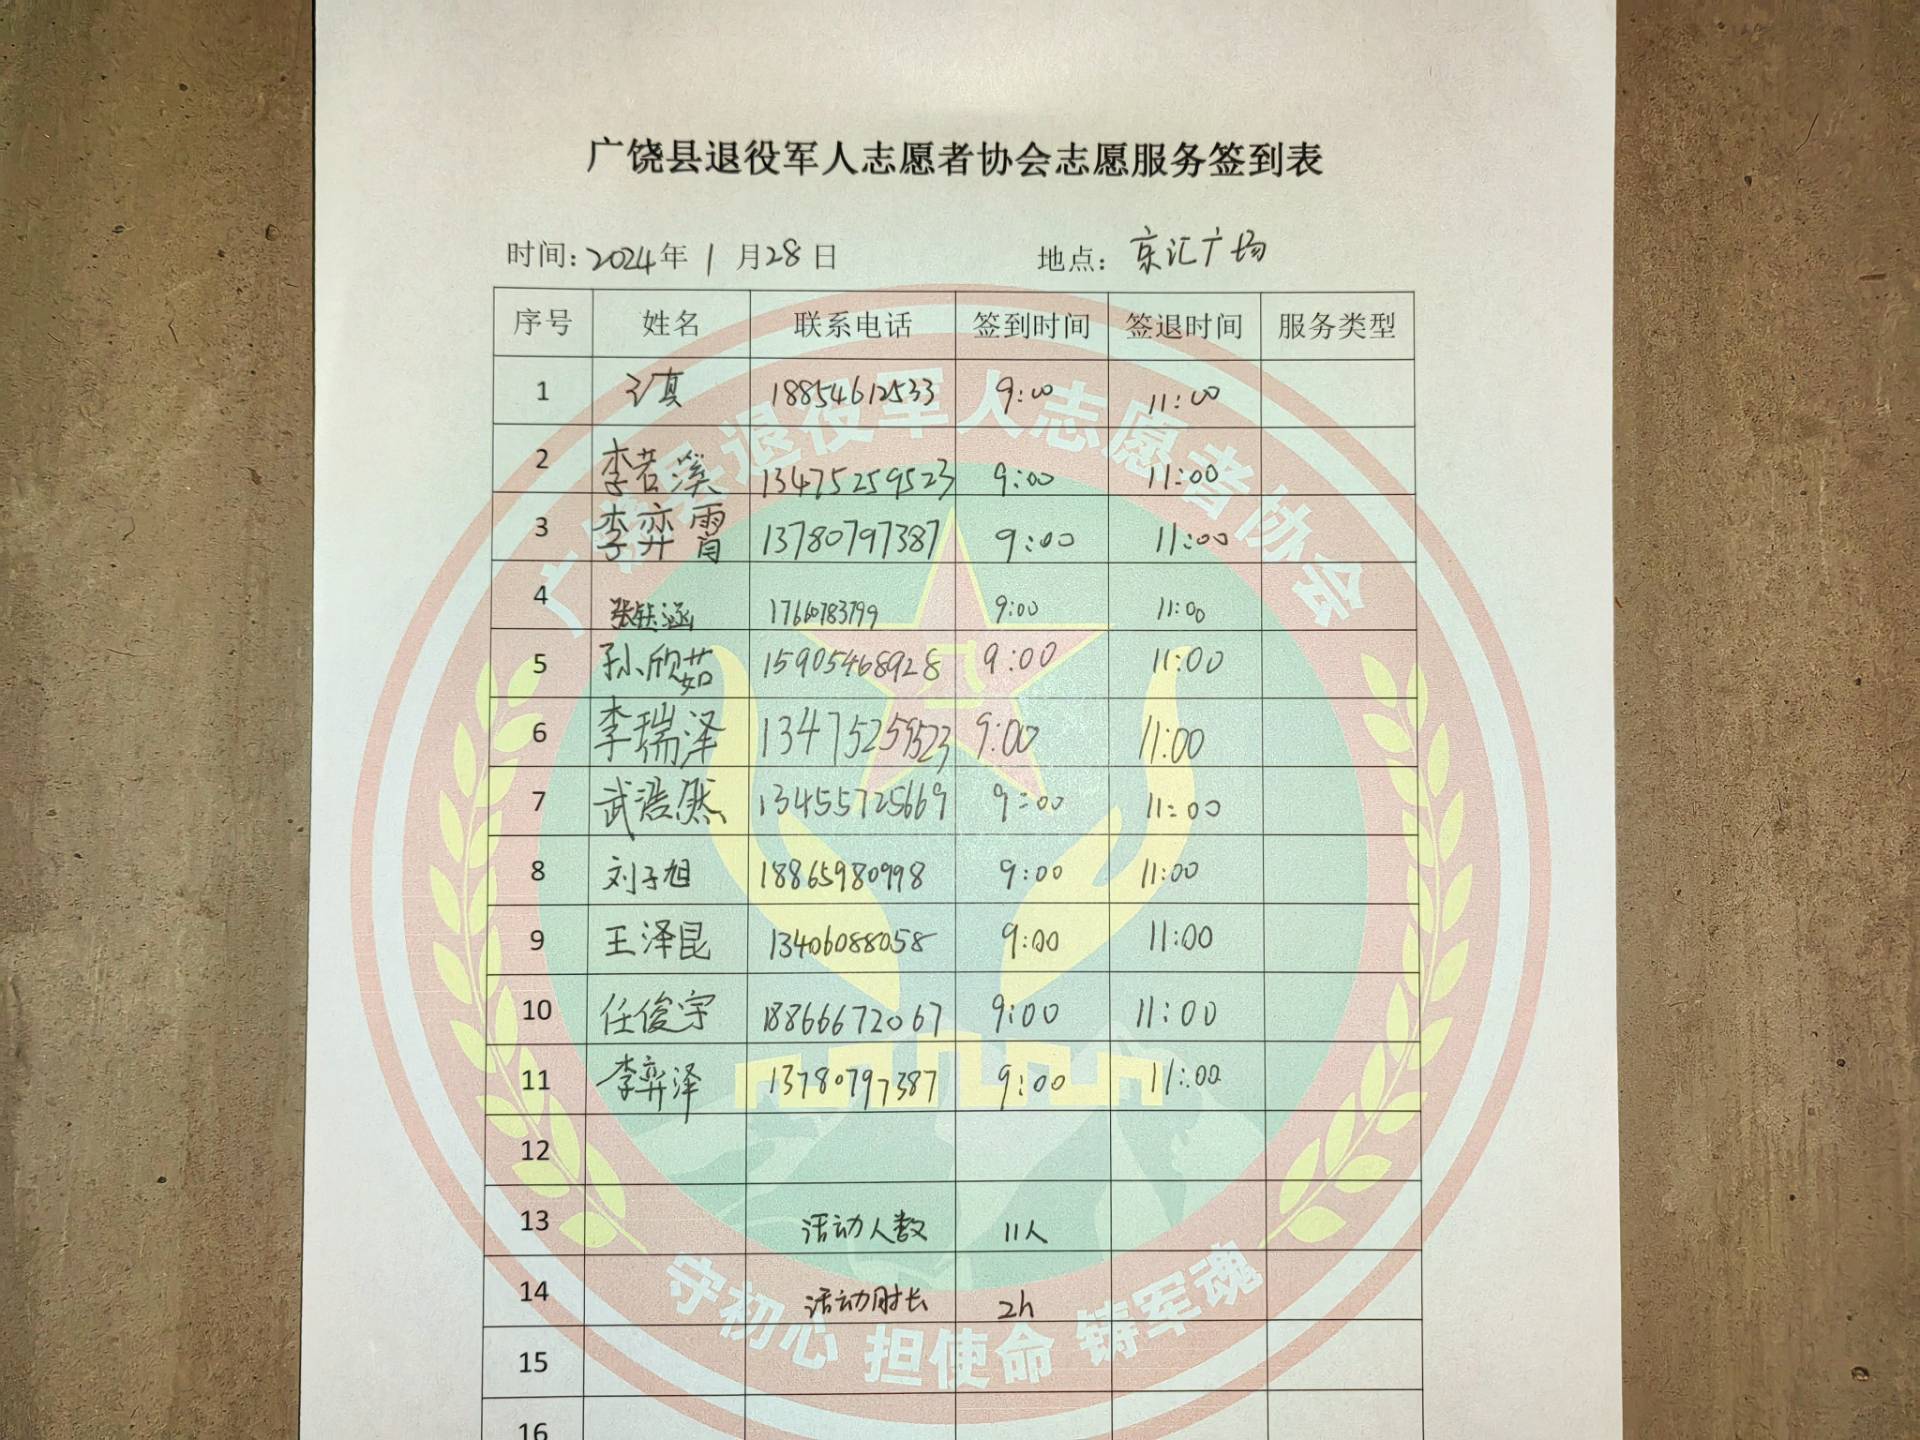 广饶县退役军人志愿者协会志愿服务签到表
时间：2024年 1 月28日 地点：京汇广场
序号 姓名 联系电话 签到时间 签退时间 服务类型
1 真 18854612533 9:00 11:00
2 李若溪 13475259523 9:00 11:00
3 李弈霄 13780797387 9:00 11:00
4 张钰涵 17660783799 9:00 11:00
5 孙欣茹 15905468928 9:00 11:00
6 李瑞泽 13475259523 9:00 11:00
7 武浩然 13455725669 9:00 11:00
8 刘子旭 18865980998 9:00 11:00
9 王泽昆 13406088058 9:00 11:00
10 任俊宇 18866672067 9:00 11:00
11 李弈泽 13780797387 9:00 11:00
12
13 活动人数 11人
14 活动时长 2h
15
16
广饶县退役军人志愿者协会
守初心 担使命 铸军魂